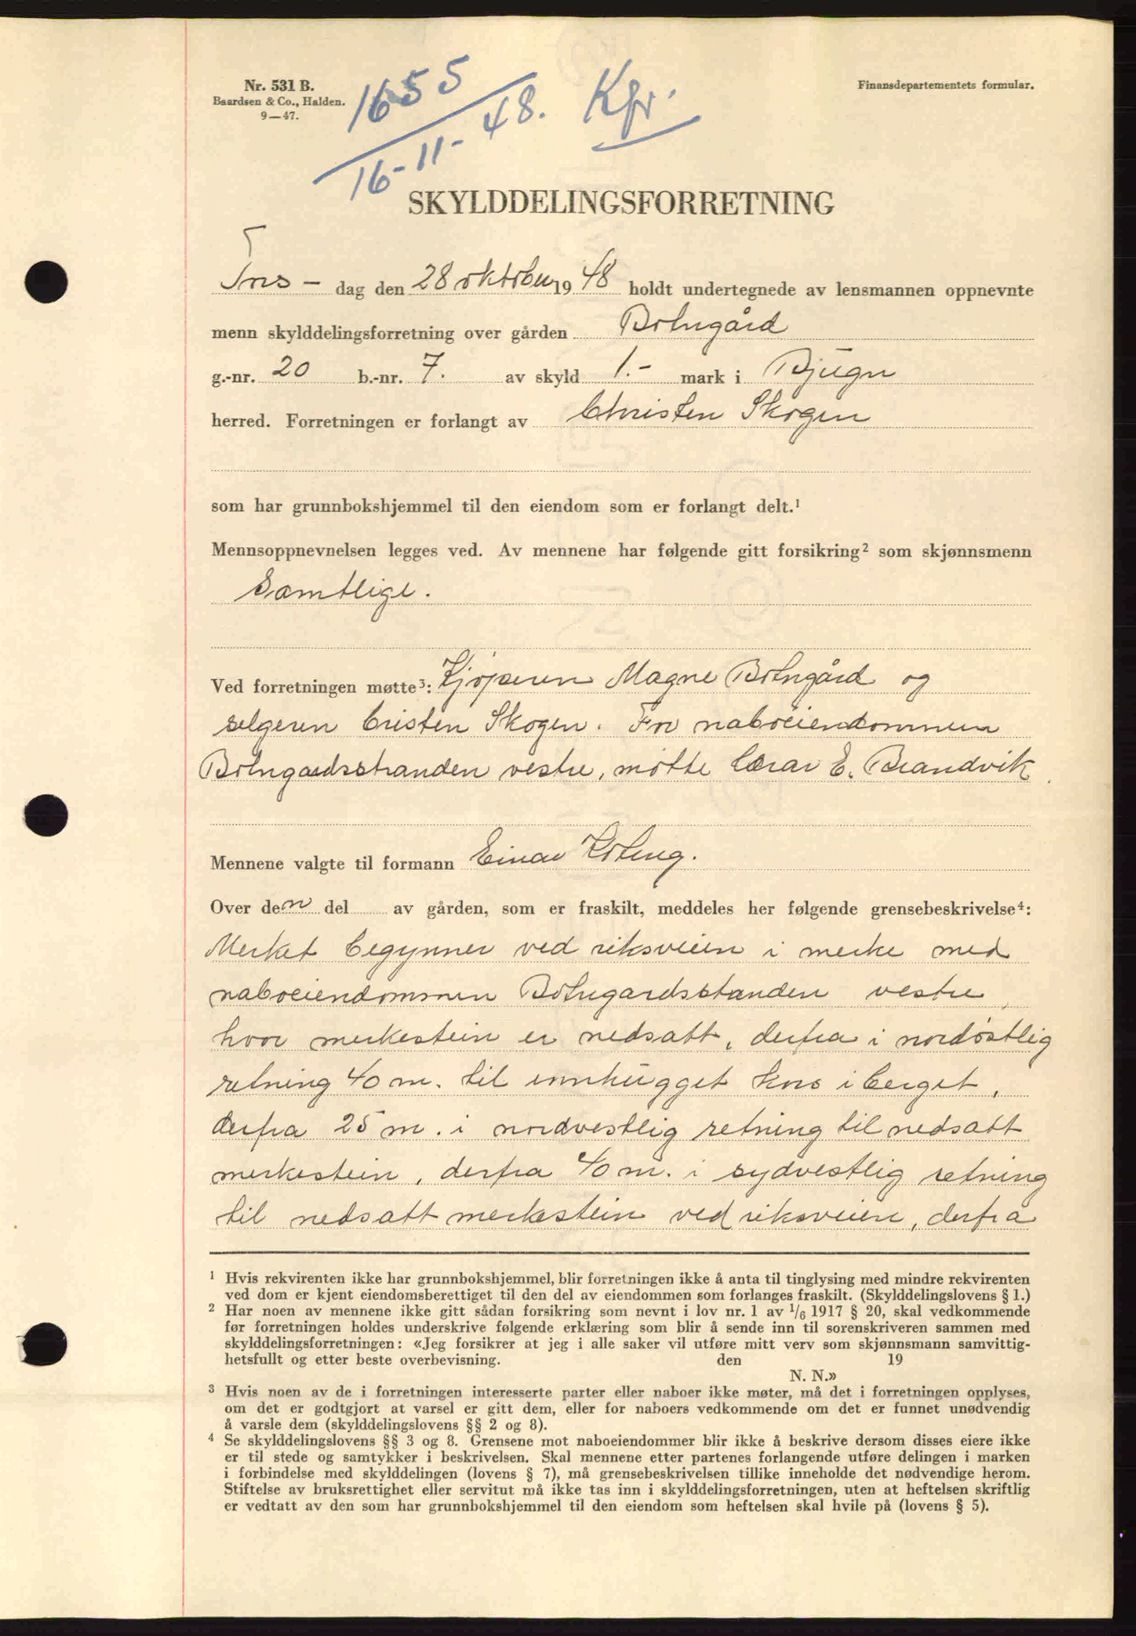 Nr. 531 B.
Baardsen & Co., Halden.
9—47.
1655
16-11-48. Kfr.
Finansdepartementets formular.
SKYLDDELINGSFORRETNING
Tors- dag den 28 oktober 1948 holdt undertegnede av lensmannen oppnevnte
menn skylddelingsforretning over gården Botngård
g.-nr. 20 b.-nr. 7. av skyld 1.- mark i Bjugn
herred. Forretningen er forlangt av Christen Skogen
som har grunnbokshjemmel til den eiendom som er forlangt delt.¹
Mennsoppnevnelsen legges ved. Av mennene har følgende gitt forsikring² som skjønnsmenn
Samtlige.
Ved forretningen møtte³: Kjøperen Magne Botngård og
selgeren Cristen Skogen. For naboeiendommen
Botngaardsstranden vestre, møtte E. Brandvik
Mennene valgte til formann Einar
Over den del av gården, som er fraskilt, meddeles her følgende grensebeskrivelse⁴:
Merket begynner ved riksveien i merke med
naboeiendommen Botngardsstanden vestre
hvor merkestein er nedsatt, derfra i nordøstlig
retning 40 m. til innhugget kors i berget,
derfra 25 m. i nordvestlig retning til nedsatt
merkestein, derfra 40 m. i sydvestlig retning
til nedsatt merkestein ved riksveien, derfra
¹ Hvis rekvirenten ikke har grunnbokshjemmel, blir forretningen ikke å anta til tinglysing med mindre rekvirenten
ved dom er kjent eiendomsberettiget til den del av eiendommen som forlanges fraskilt. (Skylddelingslovens § 1.)
² Har noen av mennene ikke gitt sådan forsikring som nevnt i lov nr. 1 av 1/6 1917 § 20, skal vedkommende
før forretningen holdes underskrive følgende erklæring som blir å sende inn til sorenskriveren sammen med
skylddelingsforretningen: «Jeg forsikrer at jeg i alle saker vil utføre mitt verv som skjønnsmann samvittig-
hetsfullt og etter beste overbevisning. den 19
N. N.»
³ Hvis noen av de i forretningen interesserte parter eller naboer ikke møter, må det i forretningen opplyses,
om det er godtgjort at varsel er gitt dem, eller for naboers vedkommende om det er funnet unødvendig
å varsle dem (skylddelingslovens §§ 2 og 8).
⁴ Se skylddelingslovens §§ 3 og 8. Grensene mot naboeiendommer blir ikke å beskrive dersom disses eiere ikke
er til stede og samtykker i beskrivelsen. Skal mennene etter partenes forlangende utføre delingen i marken
i forbindelse med skylddelingen (lovens § 7), må grensebeskrivelsen tillike inneholde det nødvendige herom.
Stiftelse av bruksrettighet eller servitut må ikke tas inn i skylddelingsforretningen, uten at heftelsen skriftlig
er vedtatt av den som har grunnbokshjemmel til den eiendom som heftelsen skal hvile på (lovens § 5).